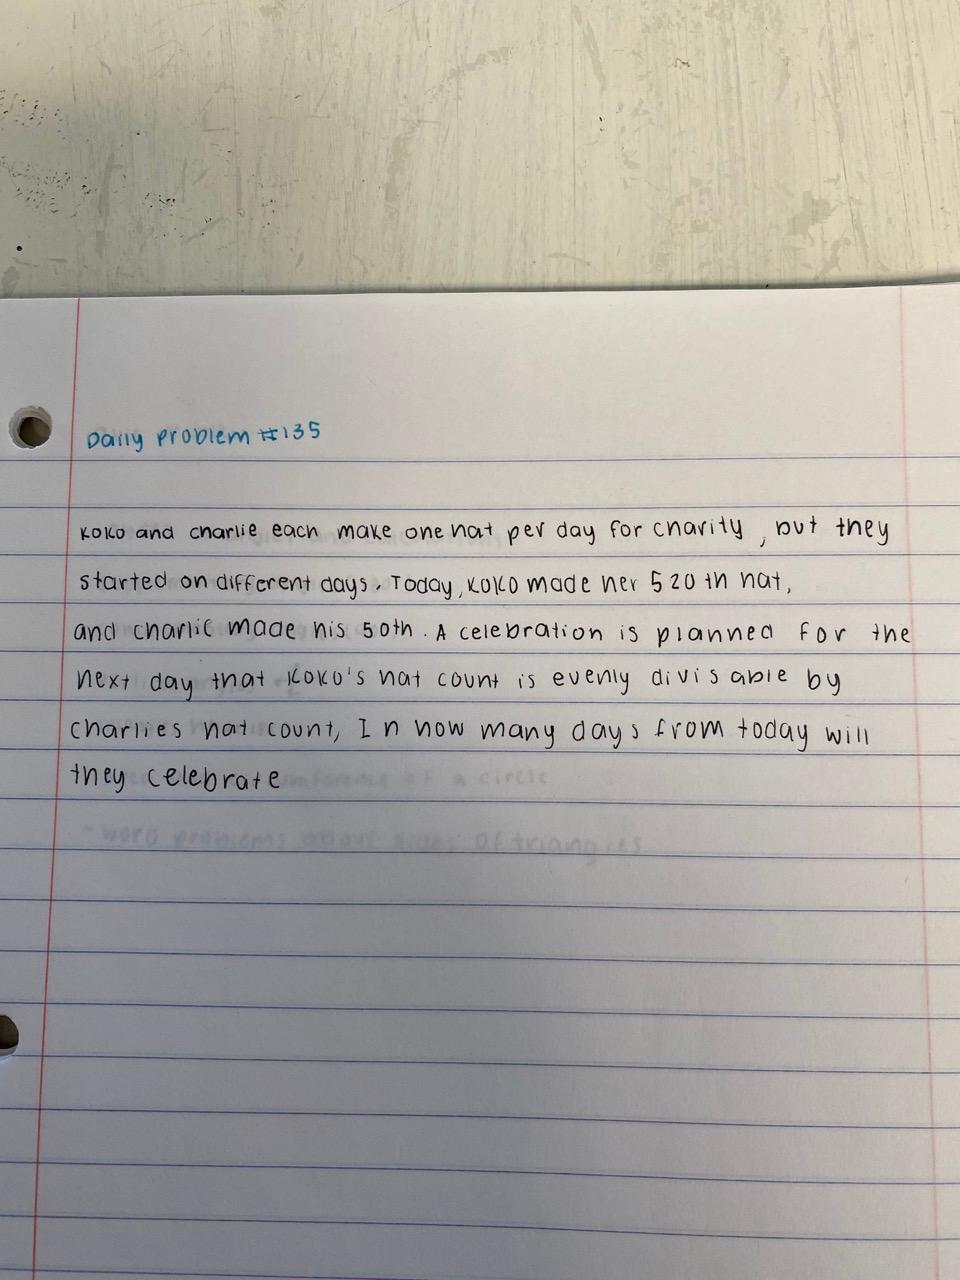 Daily Problem #135
Koko and charlie each make one hat per day for charity, but they
started on different days. Today, Koko made her 520th hat,
and charlie made his 50th. A celebration is planned for the
next day that Koko's hat count is evenly divisable by
charlies hat count, In how many days from today will
they celebrate
-word problems about sides of triangles